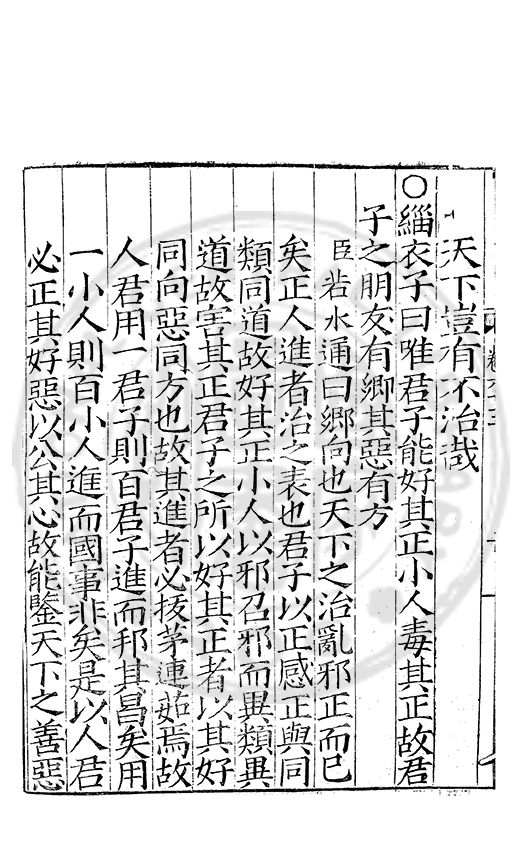 天下豈有不治哉
○緇衣子曰唯君子能好其正小人毒其正故君
子之朋友有鄉其惡有方
臣若水通曰鄉向也天下之治亂邪正而已
矣正人進者治之表也君子以正感正與同
類同道故好其正小人以邪召邪而異類異
道故害其正君子之所以好其正者以其好
同向惡同方也故其進者必拔茅連茹焉故
人君用一君子則百君子進而邦其昌矣用
一小人則百小人進而國事非矣是以人君
必正其好惡以公其心故能鑒天下之善惡